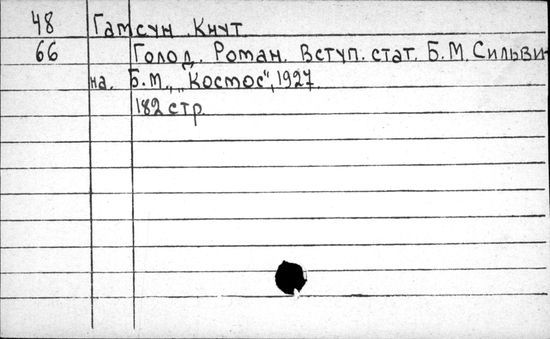 48 Гамсун Кнут
66 Голод. Роман. Вступ. стат. Б.М. Сильви-
на. Б.М., „Космос", 1927.
182 стр.